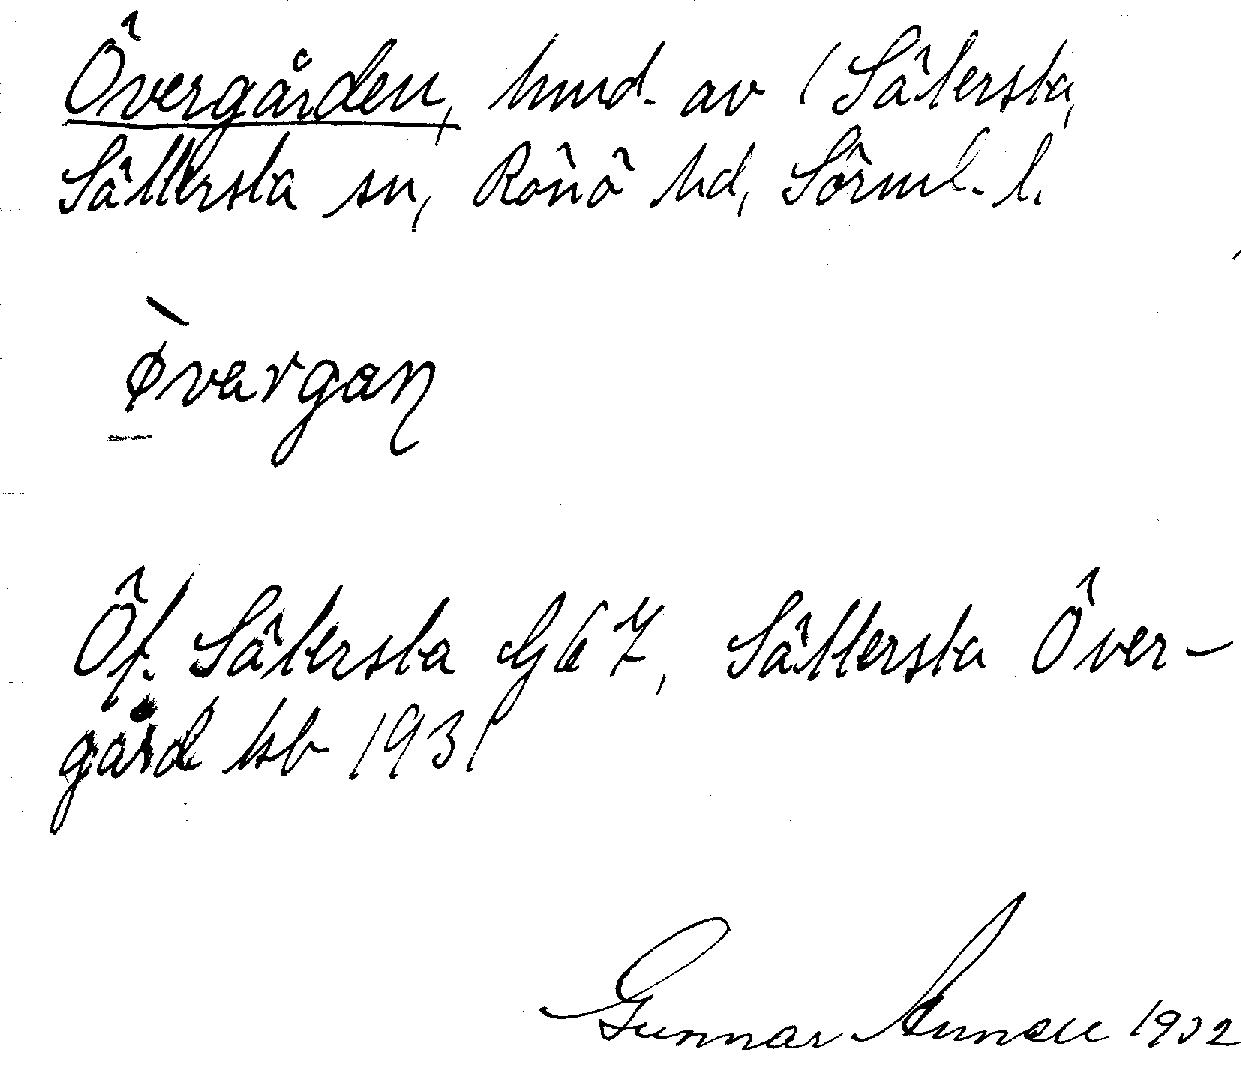 Övergården, hmd. av 1 Sätersta,
Sättersta sn, Rönö hd, Sörml. l.
Øvargan
Öf. Sätersta G67, Sättersta Över-
gård hsb 1931
Gunnar 1932